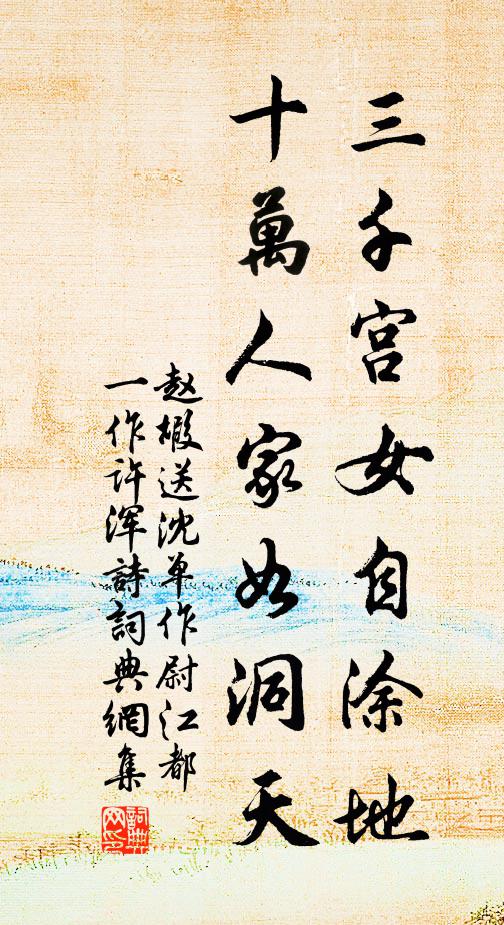 三千宫女自涂地
十萬人家如洞天
赵嘏送沈单作尉江都
一作许浑詩詞典網集
詞典
网印